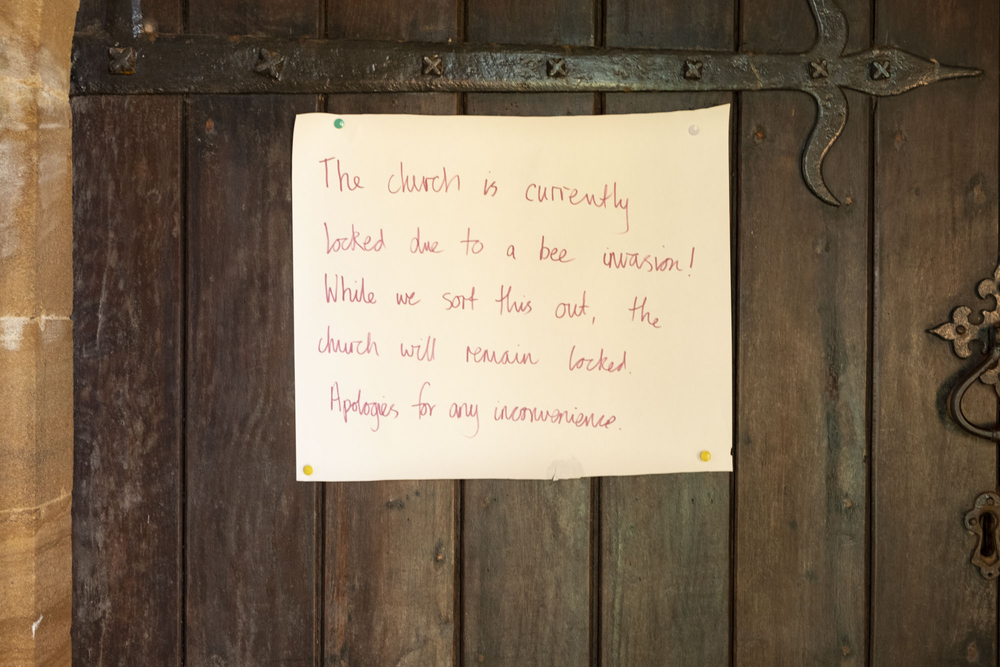 The church is currently
locked due to a bee invasion!
While we sort this out, the
church will remain locked.
Apologies for any inconvenience.